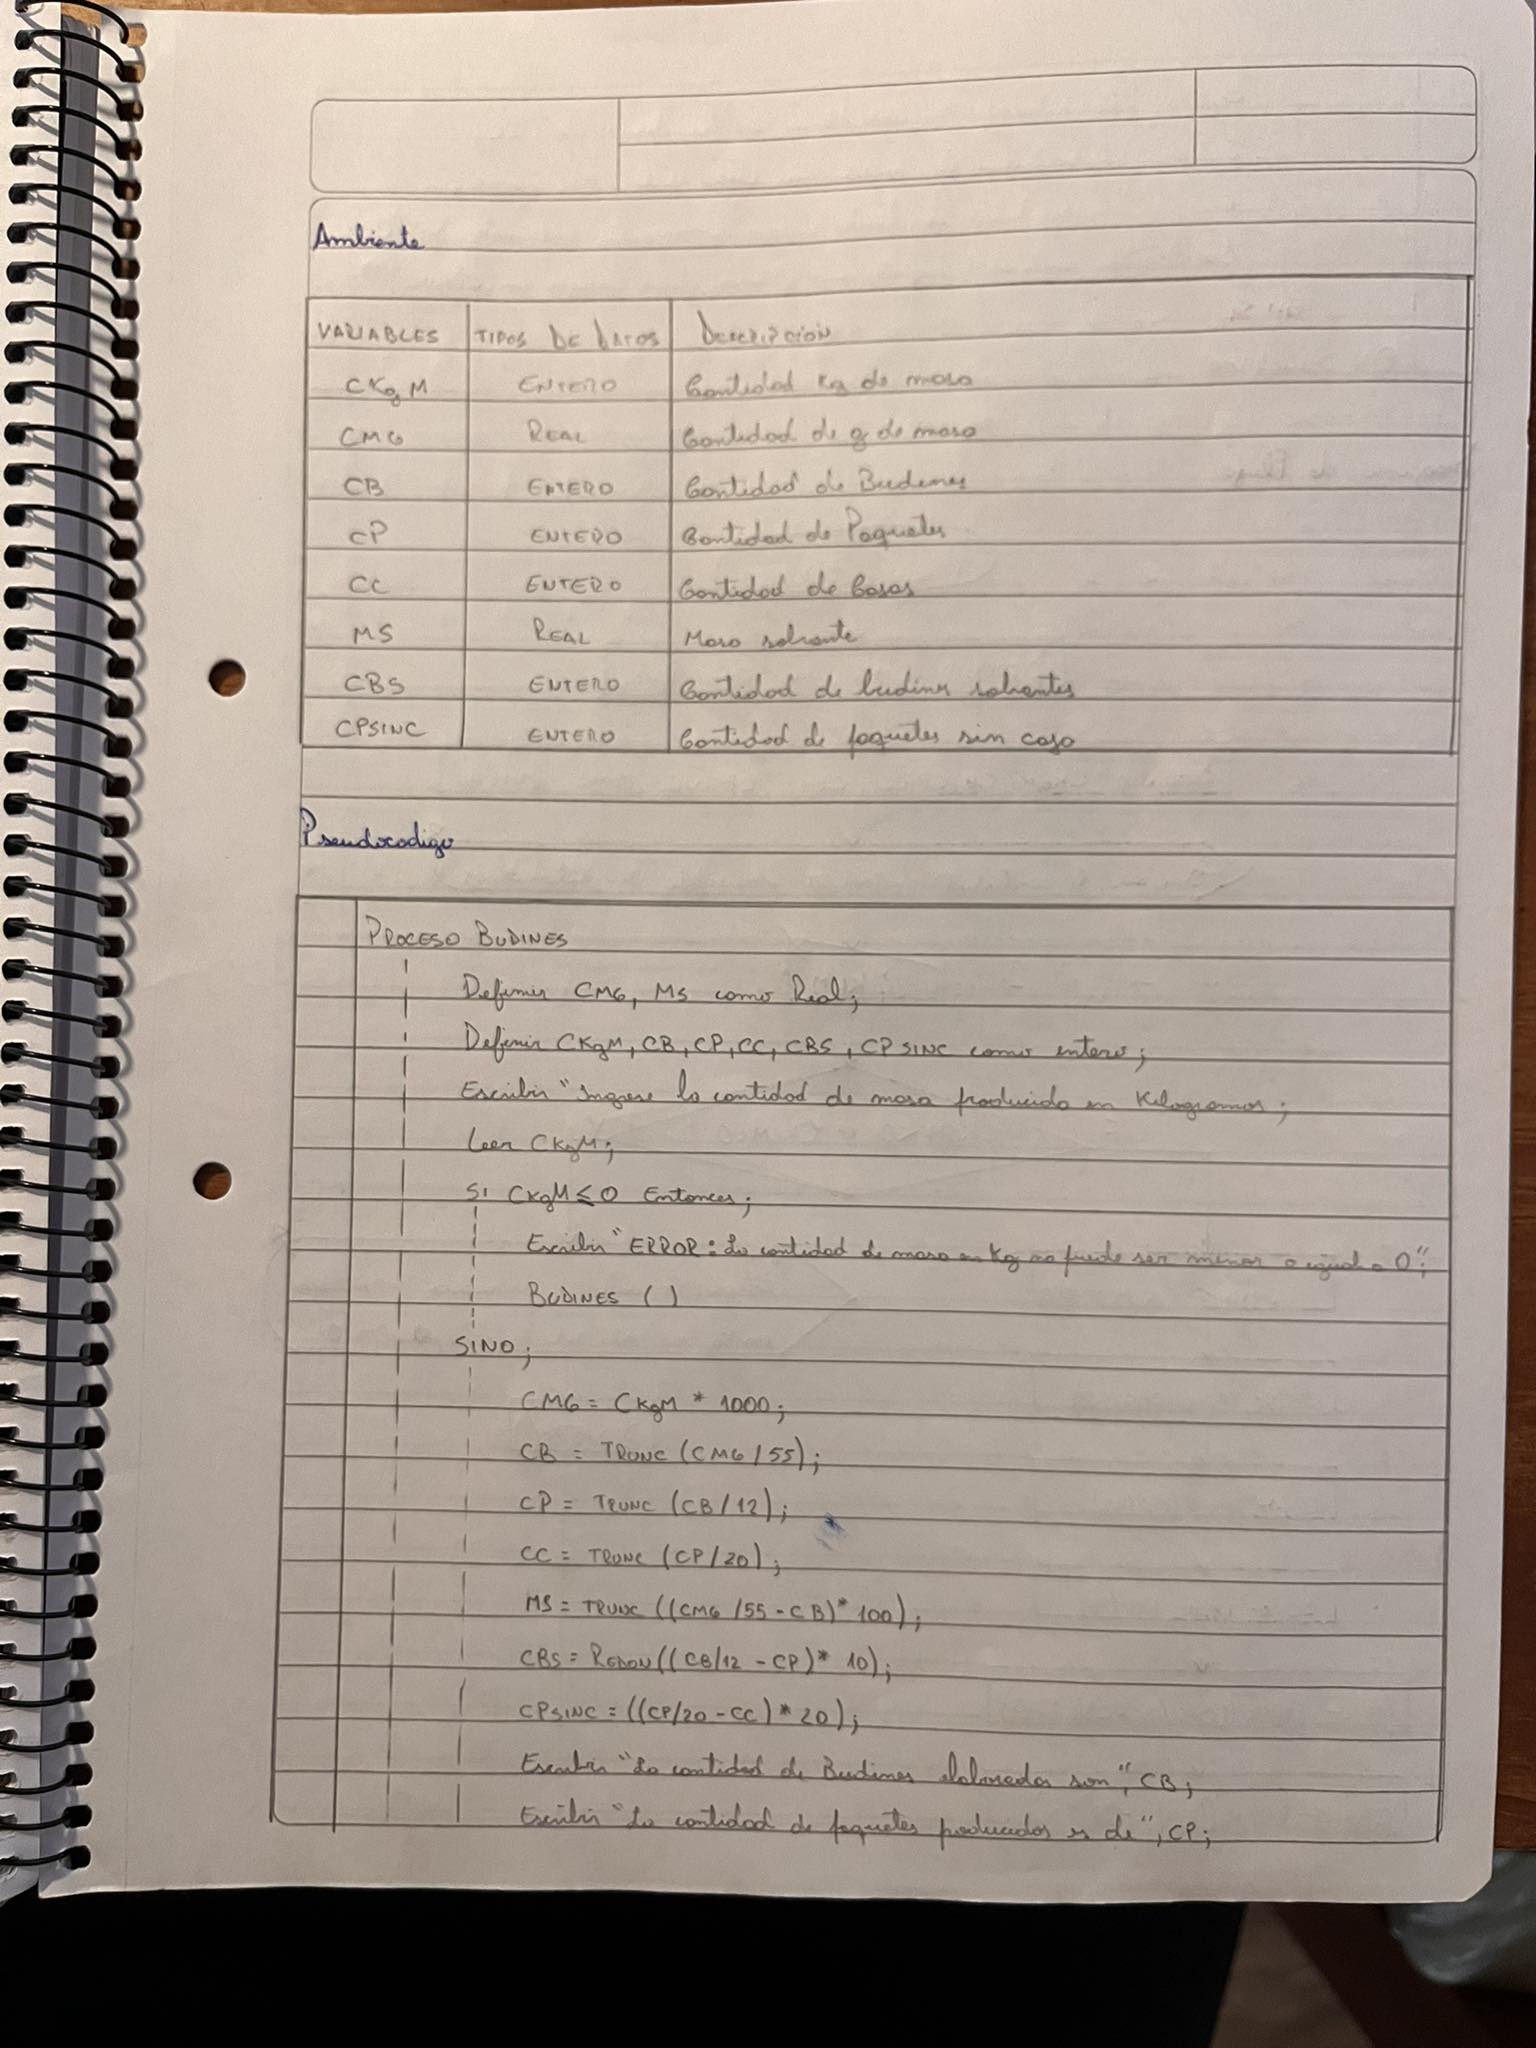 Ambiente
VARIABLES TIPOS DE DATOS DESCRIPCION
CKgM ENTERO Cantidad Kg de masa
CMG REAL Cantidad de g de masa
CB ENTERO Cantidad de Budines
CP ENTERO Cantidad de Paquetes
CC ENTERO Cantidad de Cajas
MS REAL Masa sobrante
CBS ENTERO Cantidad de budines sobrantes
CPSINC ENTERO Cantidad de paquetes sin caja
Pseudocodigo
PROCESO BUDINES
Definir CMG, MS como Real;
Definir CKgM, CB, CP, CC, CBS, CPSINC como entero;
Escribir "Ingrese la cantidad de masa producida en Kilogramos;
Leer CKgM;
SI CKgM ≤ 0 Entonces;
Escribir "ERROR: La cantidad de masa en Kg no puede ser menor o igual a 0";
BUDINES ( )
SINO;
CMG = CKgM * 1000;
CB = TRUNC (CMG / 55);
CP = TRUNC (CB / 12);
CC = TRUNC (CP / 20);
MS = TRUNC ((CMG / 55 - CB) * 100);
CBS = REDON ((CB/12 - CP) * 10);
CPSINC = ((CP/20 - CC) * 20);
Escribir "La cantidad de Budines elaborados son", CB;
Escribir "La cantidad de paquetes producidos es de", CP;